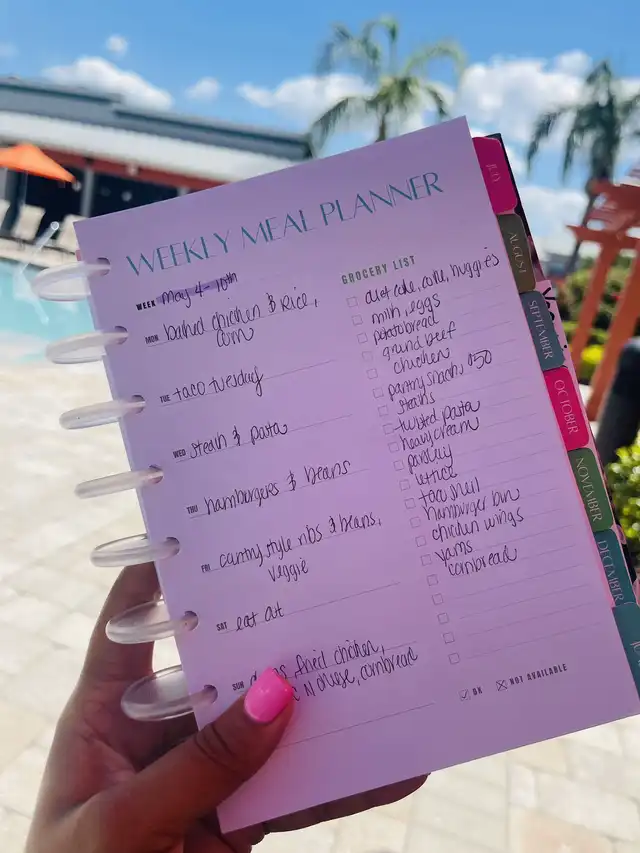 WEEKLY MEAL PLANNER
WEEK May 4-10th
MON baked chicken & Rice,
corn
TUE taco tuesday
WED steak & pasta
THU hamburgers & beans
FRI country style ribs & beans,
veggie
SAT eat out
SUN fried chicken,
N cheese, cornbread
GROCERY LIST
diet coke, coke, huggies
milk, eggs
potato bread
ground beef
chicken
pantry snacks $50
steaks
twisted pasta
heavy cream
parsley
lettuce
taco shell
hamburger bun
chicken wings
yams
cornbread
OK NOT AVAILABLE
AUGUST
SEPTEMBER
OCTOBER
NOVEMBER
DECEMBER